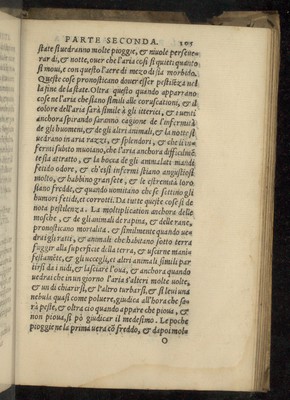 PARTE SECONDA. 105
state si uedranno molte pioggie, & niuole perseue-
rar di, & notte, ouer che l'aria cosi si quieti quanto
si moui, e con questo l'aere di mezo dì sia morboso.
Queste cose pronosticano douer esser pestilēza nel
la fine de la state. Oltra questo quando apparano
cose ne l'aria che siano simili alle coruscationi, & il
colore dell'aria sarà simile à gli itterici, & i uenti
anchora spirando saranno cagione de l'infermità
de gli huomeni, & de gli altri animali, & la notte si
uedrano in aria razzi, & splendori, & che li in-
fermi subito muoiano, che l'aria anchora difficilmē
te sia attratto, & la bocca de gli ammalati mandi
fetido odore, & ch'essi infermi stiano angustiosi
molto, & habbino gran sete, & le estremità loro
siano fredde, & quando uomitano che se sentino gli
humori fetidi, et corrotti. Da tutte queste cose si de
nota pestilenza. La moltiplication anchora delle
mosche, & de gli animali de rapina, & delle rane,
pronosticano mortalita. & similmente quando ue
drai gli ratti, & animali che habitano sotto terra
fuggir alla superficie della terra, & uscirne mani-
festamēte, & gli uccegli, et altri animali simili par
tirsi da i nidi, & lasciare l'oua, & anchora quando
uedrai che in un giorno l'aria s'alteri molte uolte,
& un dì chiarirsi, & l'altro turbarsi, & si leui una
nebula quasi come poluere, giudica all'hora che sa-
rà peste, & oltra ciò quando appare che pioua, &
non pioua, si pò giudicar il medesimo. Le poche
pioggie ne la prima uera cō freddo, & dapoi mol-
O